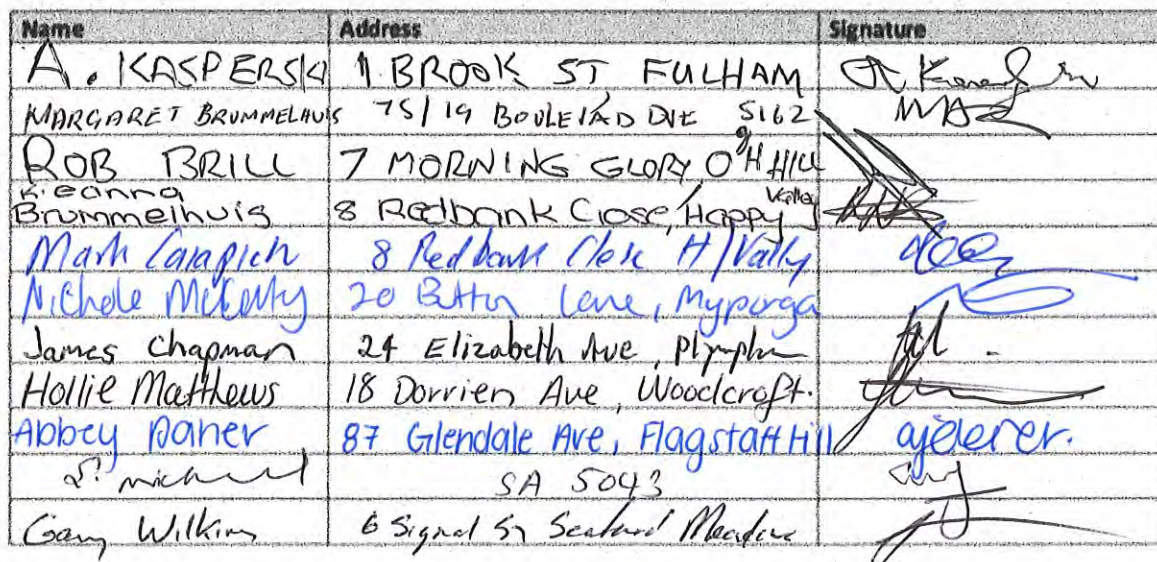 Name Address Signature
A. KASPERSKI 1 BROOK ST FULHAM
MARGARET BRUMMELHUIS 75/19 BOULEVAD DVE 5162
ROB BRILL 7 MORNING GLORY O'H HILL
Kieanna Brummelhuis 8 Redbank Close, Happy Valley
Mark 8 Redbank Close H/Vally
Nichole 20 Button Lane, Myponga
James Chapman 24 Elizabeth Ave, Plympton
Hollie Matthews 18 Dorrien Ave, Woodcroft.
Abbey 87 Glendale Ave, Flagstaff Hill
SA 5043
Gary Wilkins 6 Signal St Seaford Meadows